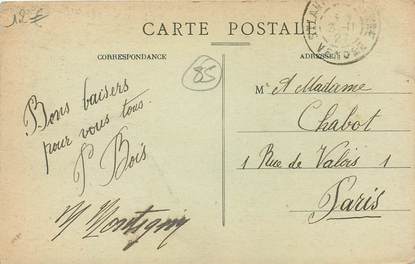 12 €
CARTE POSTALE
CORRESPONDANCE
ADRESSE
85
VENDÉE
Bons baisers
pour vous tous.
P Bois
M Montigny
M A Madame
Chabot
1 Rue de Valois 1
Paris